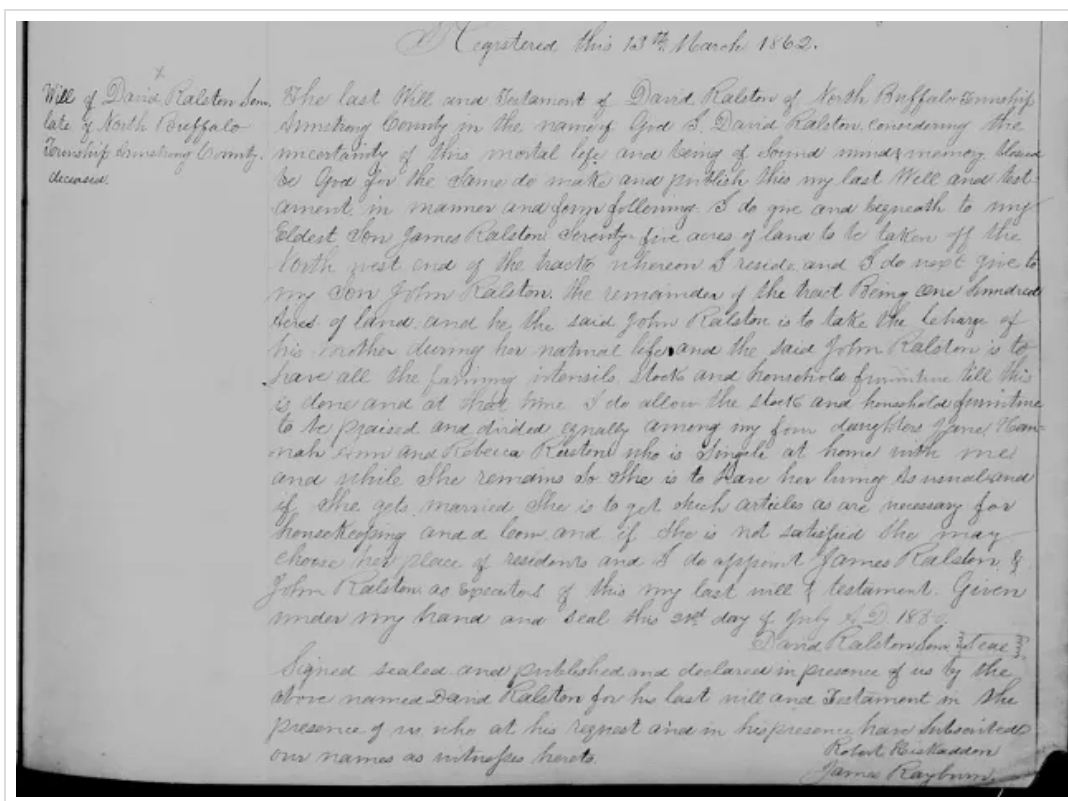 Registered this 13th March 1862.
Will of David Ralston Senr.
late of North Buffalo
Township Armstrong County.
deceased.
The last Will and Testament of David Ralston of North Buffalo Township
Armstrong County in the name of God I, David Ralston, considering the
uncertainty of this mortal life and being of Sound mind & memory blessed
be God for the Same do make and publish this my last Will and test-
ament, in manner and form following. I do give and bequeath to my
Eldest Son James Ralston Seventy five acres of land to be taken off the
North west end of the tract whereon I reside, and I do next give to
my Son John Ralston. the remainder of the tract Being one hundred
Acres of land. and he the said John Ralston is to take the Charge of
his mother during her natural life, and the said John Ralston is to
have all the farming intensils, stock and household furniture till this
is done and at that time I do allow the stock and household furniture
to be praised and divided equally among my four daughters Jane, Han-
nah Ann and Rebecca Ralston who is Single at home with me
and while She remains So She is to have her living as usual and
if She gets married She is to get Such articles as are necessary for
housekeeping and a loom and if She is not satisfied She may
choose her place of residents and I do appoint James Ralston &
John Ralston as Executors of this my last will & testament. Given
under my hand and seal this day of July A.D.
David Ralston Senr. Seal
Signed sealed and published and declared in presence of us by the
above named David Ralston for his last will and Testament in the
presence of us who at his request and in his presence have Subscribed
our names as witnesses hereto.
Robert
James Rayburn